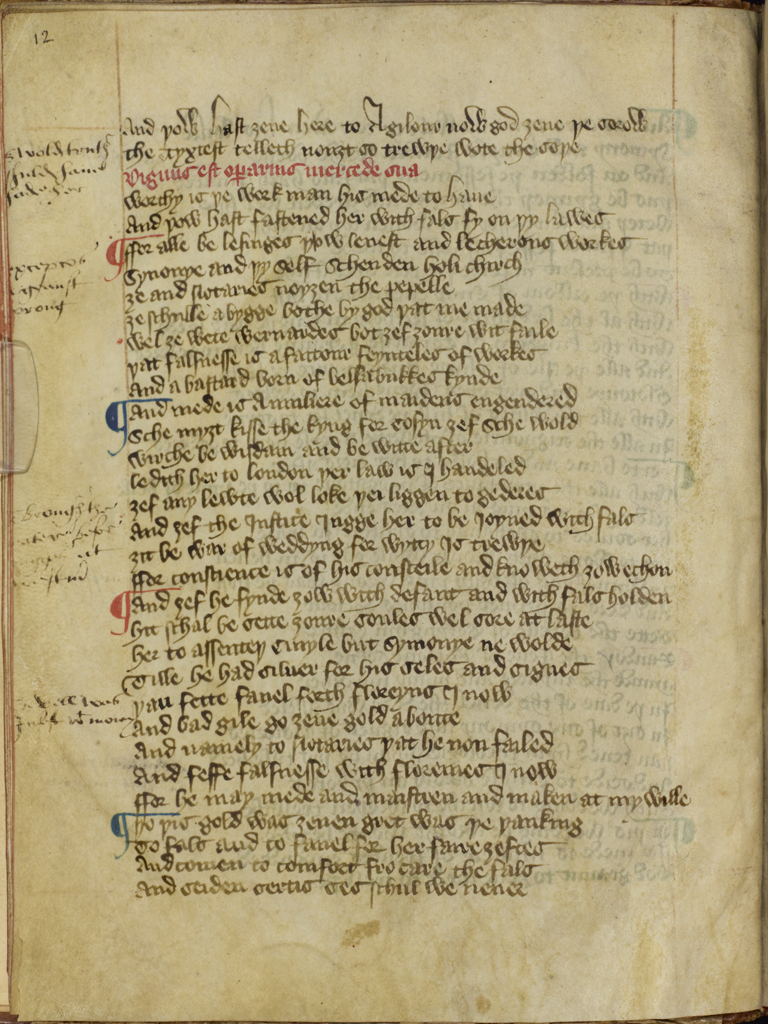 12
And þow hast ȝeue here to A gilour now god ȝeue þe sorow
the tyxtest telleth nouȝt so trewþe wote the soþe
Dignus est operarius mercede sua
worthy is þe werkman his mede to haue
And þow hast fastened her with fals fy on þy lawes
ffor alle be lesinges þow leuest and lecherous workes
Symonye and þy self schenden holi chirch
ȝe and Notaries noyȝen the pepelle
ȝe schulle abygge bothe by god þat me made
wel ȝe wete wernardes bot ȝef ȝoure wit faile
þat falsnesse is a faitour feynteles of workes
And a bastard born of belsabukkes kynde
And mede is A muliere of maidens engendered
Sche myȝt kisse the kyng for cosyn ȝef sche wold
wirche be wisdam and be witte after
ledith her to london þer law is I handeled
ȝef any lewte wol loke þei liggen to gederes
And ȝef the Justice Jugge her to be Joyned with fals
ȝit be war of weddyng for wytty Is trewþe
ffor conscience is of his conseile and knoweth ȝow echon
And ȝef he fynde ȝow with defaut and with fals holden
hit schal be sette ȝoure soules wel sore at laste
her to assenteþ Cyuyle but Symonye ne wolde
Tille he had siluer for his seles and signes
þan fette fauel forth floreyns I now
And bad gile go ȝeue gold aboute
And namely to Notaries þat he non failed
And feffe falsnesse with florenes I now
ffor he may mede and maistren and maken at my wille
Tho þis gold was ȝeuen gret was þe þanking
To fals and to fauel for her faire ȝeftes
And comen to comfort fro care the fals
And seiden sertis ses schul we neuer